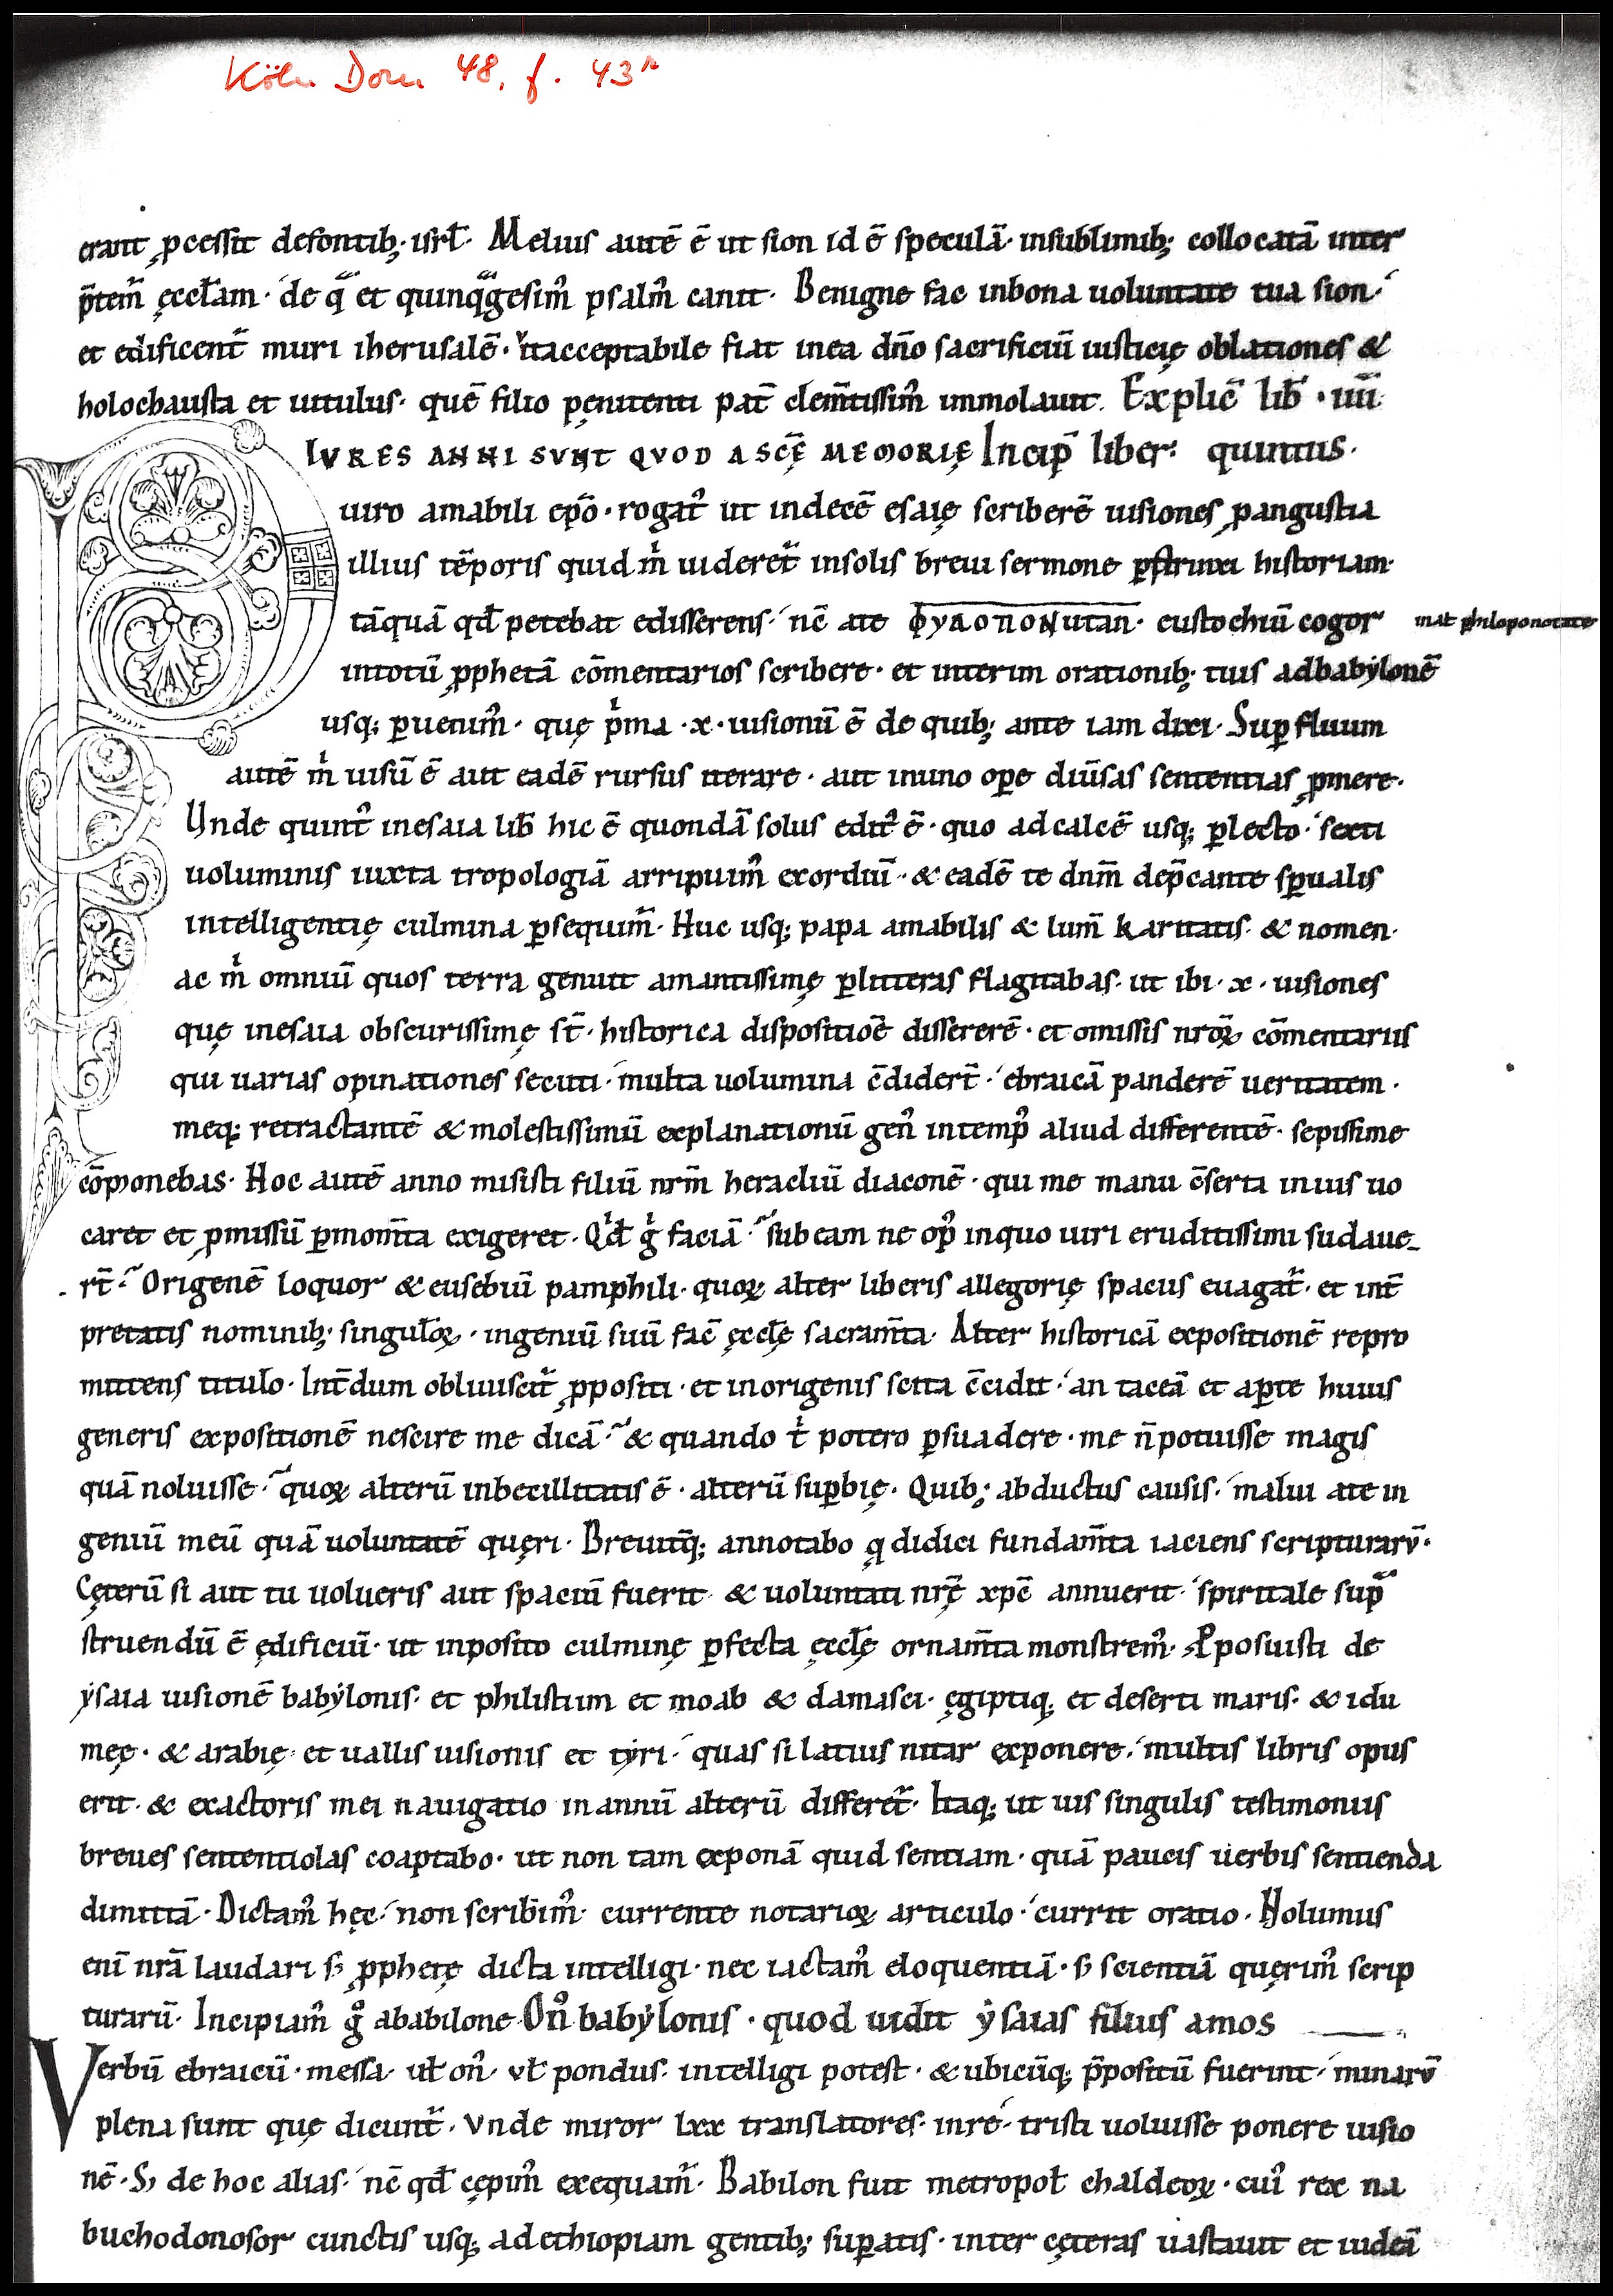 Köln Dom 48, f. 43r
erant ꝓcessit defontib; isrł. Melius autē ē ut sion id ē speculā. insublimib; collocatā inter
p̄tem̄ ęccłam. de qͣ et quinqͣgesim᷒ psalm᷒ canit. Benigne fac inbona uoluntate tua sion.
et edificent᷑ muri iherusalē. utacceptabile fiat inea dn̄o sacrificiū iusticię oblationes &
holochausta et uitulus. quē filio pęnitenti pat̄ clem̄tissim᷒ immolauit. Explic̄ lib̄ . iiii.
PLVRES ANNI SVNT QVOD A SCĘ̄ MEMORIĘ Incip̄ liber quintus.
uiro amabili ep̄o. rogat᷒ ut indecē esaię scriberē uisiones ꝓangustia
illius tēporis quid mͥ uideret᷑ insolis breui sermone ꝑstrinxi historiam.
tāquā qđ petebat edisserens. nc̄ ate ΦΥΛΟΠΟΝutan. eustochiū cogor
inat philoponotate
intotū ꝓphetā cōmentarios scribere. et interim orationib; tuis adbabẏlonē
usq; ꝑuenim᷒. quę pͥma .x. uisionū ē de quib; ante iam dixi. Suꝑfluum
autē mͥ uisū ē aut eadē rursus iterare. aut inuno oꝑe diūsas sententias ꝓmere.
Unde quint᷒ inesaia lib̄ hic ē quondā solus edit᷒ ē. quo adcalcē usq; ꝑlecto. sexti
uoluminis iuxta tropologiā arripuim᷒ exordiū. & eadē te dnm̄ dep̄cante sp̄ualis
intelligentię culmina ꝑsequim᷑. Huc usq; papa amabilis & lum̄ karitatis. & nomen.
ac mͥ omniū quos terra genuit amantissimę ꝑlitteras flagitabas. ut ibi .x. uisiones
quę inesaia obscurissimę st̄. historica dispositiōe dissererē. et omissis nr̄oꝝ cōmentariis
qui uarias opinationes secuti. multa uolumina c̄didert̄. ebraicā panderē ueritatem.
meq; retractantē & molestissimū explanationū gen᷒ intemp᷒ aliud differentē. sepissime
cōmonebas. Hoc autē anno misisti filiū nrm̄ heracliū diaconē. qui me manu c̄serta inius uo
caret et ꝓmissū ꝑmom̄ta exigeret. Qͥd gͥ faciā. subeam ne op᷒ inquo uiri eruditissimi sudaue-
rt̄. Origenē loquor & eusebiū pamphili. quoꝝ alter liberis allegorię spaciis euagat᷑. et int̄
pretatis nominib; singuł̄oꝝ. ingeniū suū fac̄ ęccłę sacram̄ta. Alter historicā expositionē repro
mittens titulo. Int̄dum obliuiscit᷑ ꝓpositi. et inorigenis scita c̄cidit. an taceā et aꝑte huius
generis expositionē nescire me dicā. & quando tͥ potero ꝑsuadere. me n̄potuisse magis
quā noluisse. quoꝝ alterū inbecillitatis ē. alterū suꝑbię. Quib; abductus causis. malui ate in
geniū meū quā uoluntatē quęri. Breuitq̄; annotabo ꝗ didici fundam̄ta iaciens scripturarū.
Cęterū si aut tu uolueris aut spaciū fuerit. & uoluntati nrę̄ xp̄c annuerit. spiritale supͣ
struendū ē ędificiū. ut inposito culminę ꝑfecta ęccłę ornam̄ta monstrem᷒. Pposuisti de
ẏsaia uisionē babẏlonis. et philistiim et moab & damasci. ęgiptiq; et deserti maris. & idu
męę. & arabię. et uallis uisionis et tẏri. quas si latius nitar exponere. multis libris opus
erit. & exactoris mei nauigatio inannū alterū differet᷑. Itaq; ut uis singulis testimoniis
breues sententiolas coaptabo. ut non tam exponā quid sentiam. quā paucis uerbis sentienda
dimittā. Dictam᷒ hęc. non scribim᷒. currente notarioꝝ articulo. currit oratio. Nolumus
enī nrā laudari s; ꝓphetę dicta intelligi. nec iactam᷒ eloquentiā. s; scientiā quęrim᷒ scrip
turarū. Incipiam᷒ gͦ ababilone. On᷒ babẏlonis. quod uidit ẏsaias filius amos
Verbū ebraicū. messa. uł on᷒. vł pondus. intelligi potest. & ubicūq; p̄positū fuerint. minarū
plena sunt quę dicunt᷑. vnde miror lxx translatores. inre tristi uoluisse ponere uisio
nē. S; de hoc alias. nc̄ qđ cępim᷒ exequam᷑. Babilon fuit metropoł chaldeoꝝ. cui᷒ rex na
buchodonosor cunctis usq; adethiopiam gentib; suꝑatis. inter cęteras uastauit et iudeā